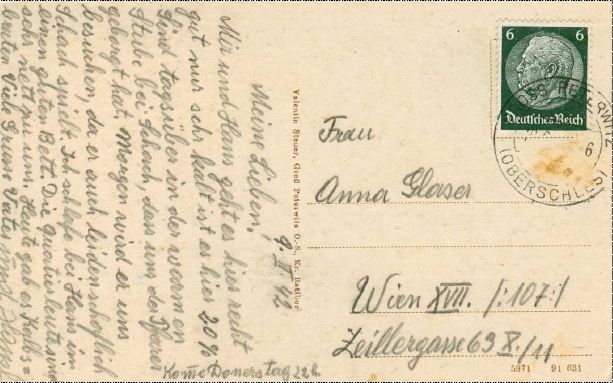 9. II 42
Meine Lieben!
Mir und Hans geht es hier recht
gut nur sehr kalt ist es hier 20%
Sind tagsüber in der warmen
Stube bei Schach, dass uns der Pfarrer
geborgt hat. Morgen wird er uns
besuchen, da er auch leidenschaftlich
Schach spielt. Ich schlafe bei Hans in
einem guten Bett. Die Quartierleute sind
sehr nett zu uns. Heute gab es Kalbs=
braten Viele Grüsse Vater und Hans
Kome Donerstag 22h.
Valentin Steuer, Groß Peterwitz O.-S., Kr. Ratibor
6 6
Deutsches Reich
GROSS PETERWITZ
(OBERSCHLES)
6
Frau
Anna Glaser
Wien XVII. /:107:/
Zeillergasse 63 X/11
5971 91 631